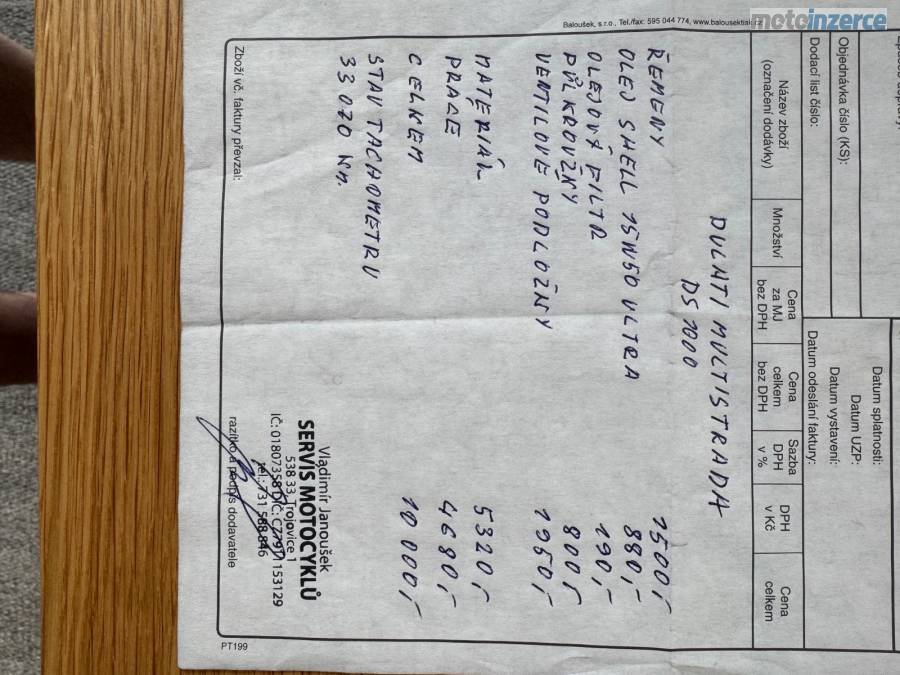 motoinzerce
Objednávka číslo (KS):
Dodací list číslo:
Datum splatnosti:
Datum UZP:
Datum vystavení:
Datum odeslání faktury:
Název zboží
(označení dodávky)
Množství
Cena
za MJ
bez DPH
Cena
celkem
bez DPH
Sazba
DPH
v %
DPH
v Kč
Cena
celkem
DUCATI MULTISTRADA
DS 1000
ŘEMENY 1500,-
OLEJ SHELL 15W50 ULTRA 880,-
OLEJOVÝ FILTR 190,-
PŮLKROUŽKY 800,-
VENTILOVÉ PODLOŽKY 1950,-
MATERIÁL 5320,-
PRÁCE 4680,-
CELKEM 10 000,-
STAV TACHOMETRU
33 070 Km.
Vladimír Janoušek
SERVIS MOTOCYKLŮ
538 33, Trojovice 1
IČ: 01807358 DIČ:
tel.: 731 588 846
razítko a podpis dodavatele
Zboží vč. faktury převzal:
PT199
Baloušek, s.r.o., Tel./fax: 595 044 774, www.balousektisk.cz